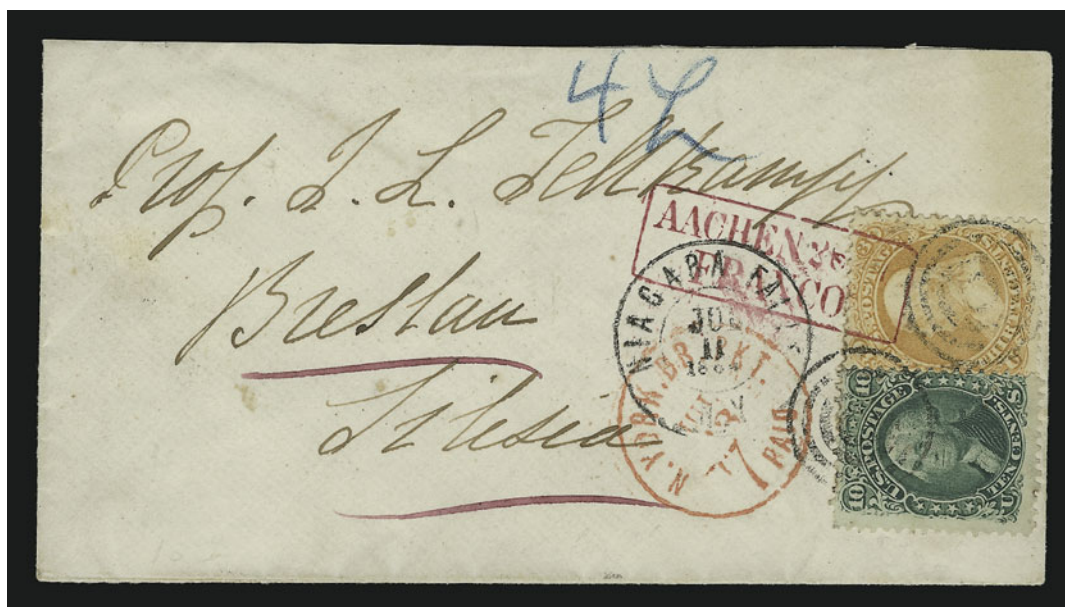 4
Prof. J. L. Tellkampf
Breslau
Silesia
AACHEN
FRANCO
NIAGARA FALLS
JUL
11
N. YORK. BR. PKT.
7 PAID
U.S. POSTAGE
10 10
TEN CENTS.
U S